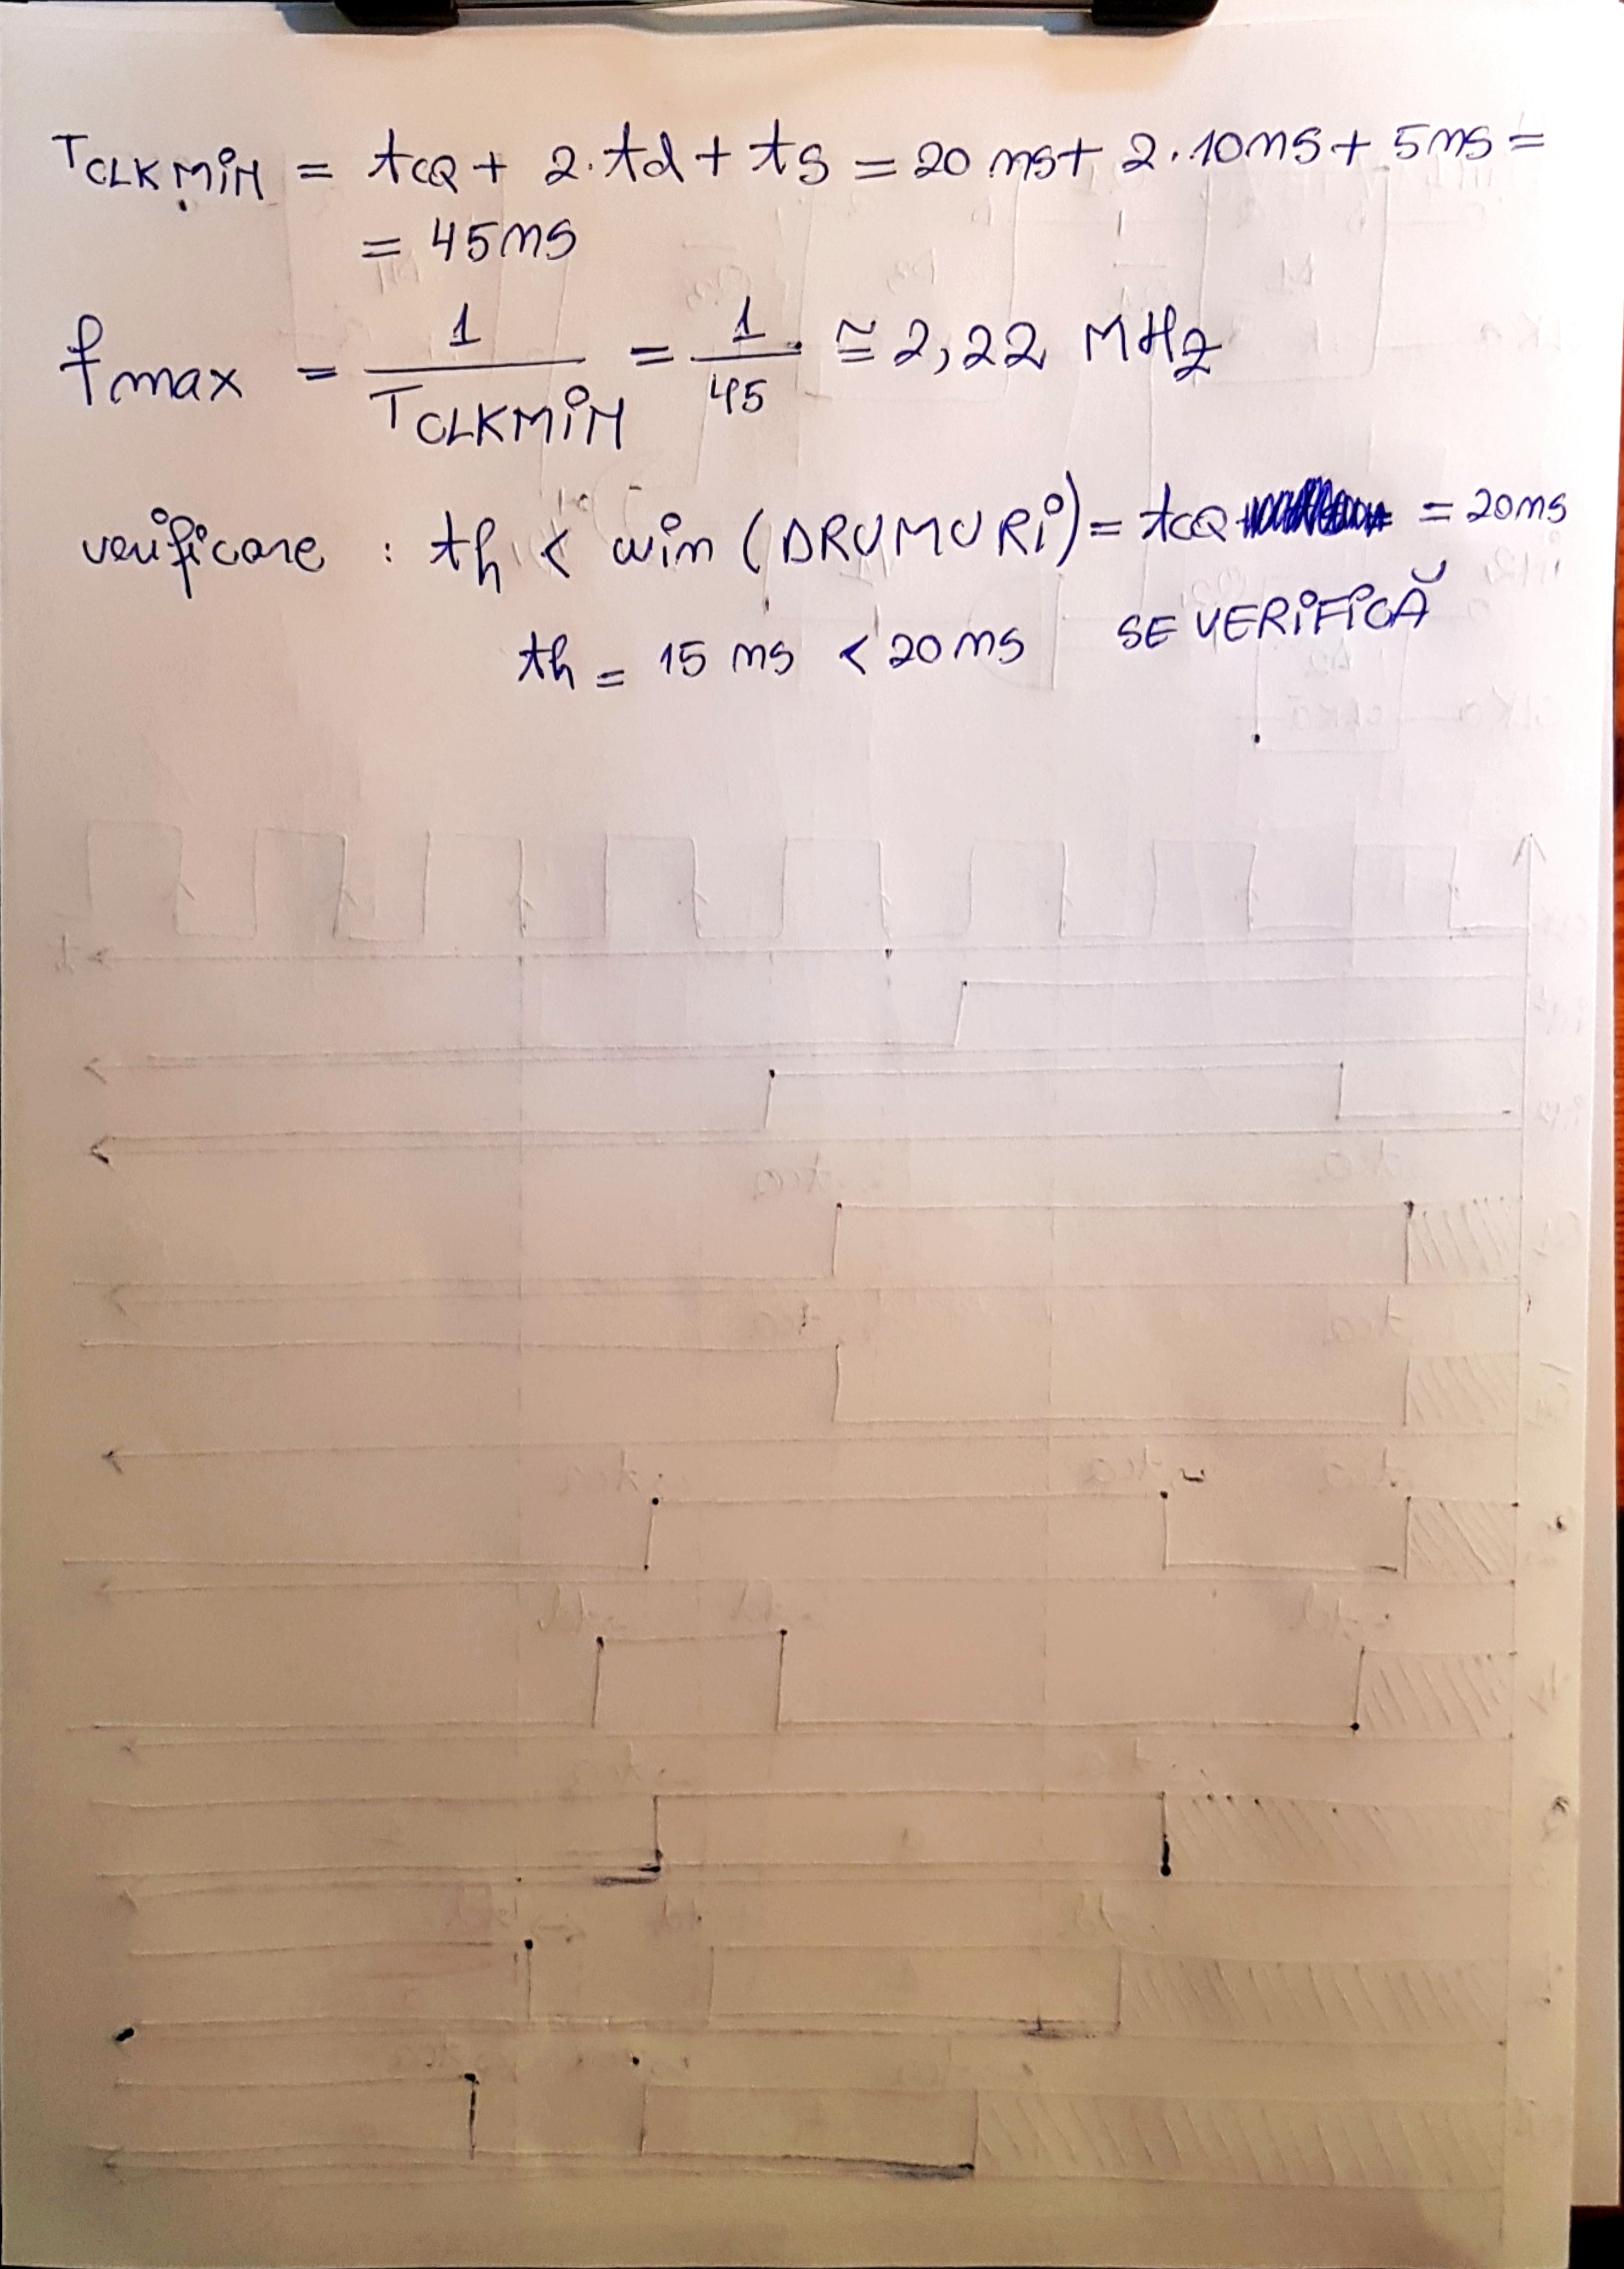 TCLKMiN = tCQ + 2·td + ts = 20 ns + 2·10ns + 5ns =
= 45ns
fmax = 1/TCLKMiN = 1/45 ≅ 2,22 MHz
verificare : th < min (DRUMURi) = tCQ = 20ns
th = 15 ns < 20ns SE VERiFiCĂ